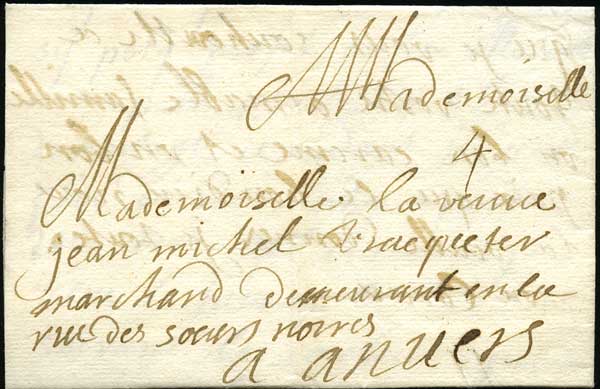 Mademoiselle
4
Mademoiselle la veuve
jean michel
marchand demeurant en la
rue des sœurs noires
a anvers